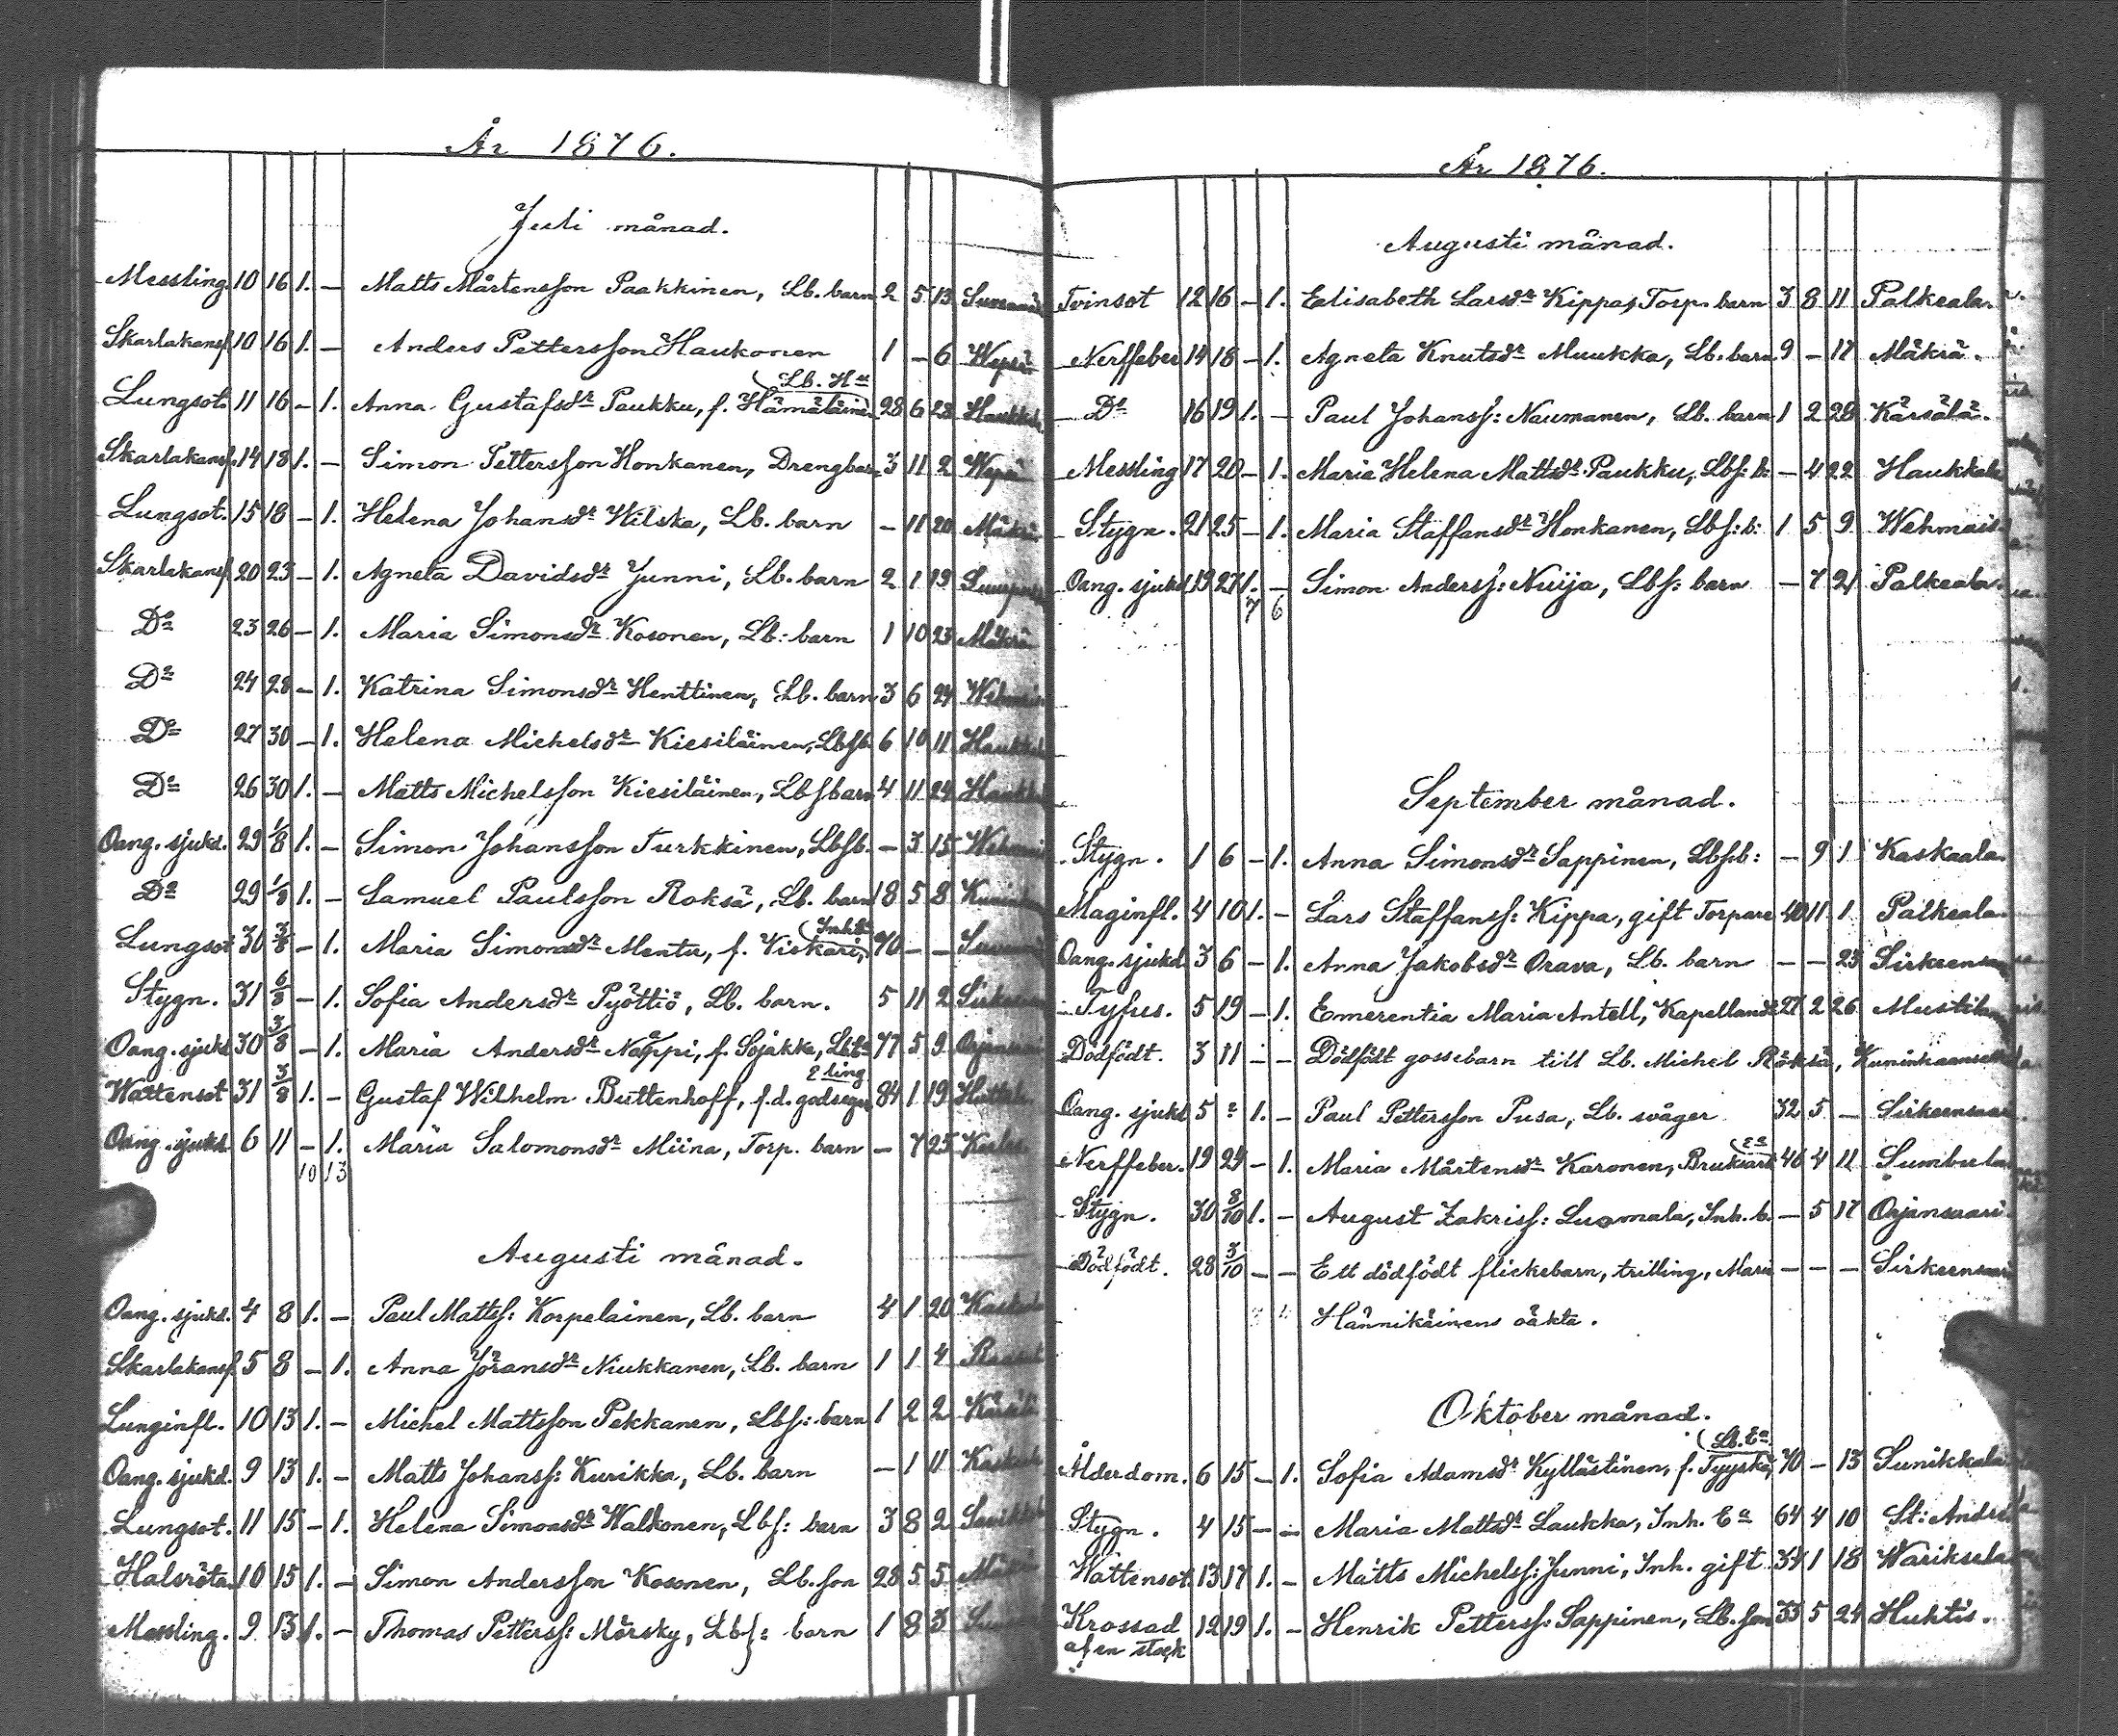 År 1876.
Juli månad.
Messling. 10 16 1. — Matts Mårtensson Paakkinen, Lb. barn 2 5 13
Skarlakansf. 10 16 1. — Anders Pettersson Haukonen 1 — 6 Wepsä
(Lb. Hª
Lungsot. 11 16 — 1. Anna Gustafsdr Paukku, f. Hämäläinen 28 6 28 Haukkala
Skarlakansf. 14 18 1. — Simon Pettersson Honkanen, Drengbarn 3 11 2 Wepsä
Lungsot. 15 18 — 1. Helena Johansdr Wilska, Lb. barn — 11 20 Mäkrä
Skarlakansf. 20 23 — 1. Agneta Davidsdr Junni, Lb. barn 2 1 19
Do 23 26 — 1. Maria Simonsdr Kosonen, Lb: barn 1 10 23 Mäkrä
Do 24 28 — 1. Katrina Simonsdr Henttinen, Lb. barn 3 6 24 Wehmais
Do 27 30 — 1. Helena Michelsdr Kiesiläinen, Lbsb. 6 10 11 Haukkala
Do 26 30 1. — Matts Michelsson Kiesiläinen, Lbsbarn 4 11 24 Haukkala
Oang. sjukd. 29 1/8 1. — Simon Johansson Turkkinen, Lbsb. — 3 15 Wehmais
Do 29 1/8 1. — Samuel Paulsson Roksä, Lb. barn 18 5 8
(Inh.
Lungsot 30 3/8 — 1. Maria Simonsdr Mentu, f. Kiskari, 70 — —
Stygn. 31 6/8 — 1. Sofia Andersdr Pyöttiö, Lb. barn. 5 11 2
Oang. sjukd 30 3/8 — 1. Maria Andersdr Nappi, f. Sojakka, 77 5 9 Orjansaari
E ling
Wattensot 31 3/8 1. — Gustaf Wilhelm Buttenhoff, f.d. godsegare 84 1 19
Oang. sjukd. 6 11 — 1. Maria Salomonsdr Miina, Torp. barn — 7 25
10 13
Augusti månad.
Oang. sjukd. 4 8 1. — Paul Mattss: Korpelainen, Lb. barn 4 1 20 Kaskaala
Skarlakansf. 5 8 — 1. Anna Jöransdr Niukkanen, Lb. barn 1 1 4
Lunginfl. 10 13 1. — Michel Mattsson Pekkanen, Lbs: barn 1 2 2 Kärsälä
Oang. sjukd. 9 13 1. — Matts Johanss: Kurikka, Lb. barn — 1 11 Kaskaala
Lungsot. 11 15 — 1. Helena Simonsdr Walkonen, Lbs: barn 3 8 2
Halsröta. 10 15 1. — Simon Andersson Kosonen, Lb. son 28 5 5 Mäkrä
Messling. 9 13 1. — Thomas Petterss: Mörsky, Lbs: barn 1 8 3
År 1876.
Augusti månad.
Tvinsot 12 16 — 1. Eelisabeth Larsdr Kippa, Torp. barn 3 8 11 Palkeala.
Nerffeber 14 18 — 1. Agneta Knutsdr Muukka, Lb. barn 9 — 17 Mäkrä.
Do 16 19 1. — Paul Johanss: Naumanen, Lb. barn 1 2 28 Kärsälä.
Messling 17 20 — 1. Maria Helena Mattsdr Paukku, Lbs: b: — 4 22 Haukkala
Stygn. 21 25 — 1. Maria Staffansdr Honkanen, Lbs: b: 1 5 9 Wehmais.
Oang. sjukd 19 27 1. — Simon Anderss: Nuija, Lbs: barn — 7 21 Palkeala.
7 6
September månad.
Stygn. 1 6 — 1. Anna Simonsdr Sappinen, Lbs:b: — 9 1 Kaskaala.
Maginfl. 4 10 1. — Lars Staffanss: Kippa, gift Torpare 40 11 1 Palkeala.
Oang. sjukd 3 6 — 1. Anna Jakobsdr Orava, Lb. barn — — 23 Sirkeensaari
Tyfus. 5 19 — 1. Emerentia Maria Antell, Kapellansdr 27 2 26
Dödfödt. 3 11 — — Dödfödt gossebarn till Lb. Michel Röksä, Kuninkaansaari
Oang. sjukd 5 2 1. — Paul Pettersson Pusa, Lb. svåger 32 5 — Sirkeensaari.
(Eª
Nerffeber. 19 24 — 1. Maria Mårtensdr Karonen, Bruksarb 46 4 11 Sumbula
Stygn. 30 8/10 1. — August Zakriss: Luomala, Inh. b. — 5 17 Orjansaari.
Dödfödt. 28 3/10 — — Ett dödfödt flickebarn, trilling, Maria — — — Sirkeensaari
Hännikäinens oäkta.
Oktober månad.
(Lb. Eª.
Ålderdom. 6 15 — 1. Sofia Adamsdr Kyllästinen, f. Tyyskä, 70 — 13 Sunikkala
Stygn. 4 15 — — Maria Mattsdr Laukka, Inh. Eª 64 4 10 St: Andreæ
Wattensot 13 17 1. — Matts Michelss: Junni, Inh. gift 34 1 18 Wariksela
Krossad 12 19 1. — Henrik Petterss: Sappinen, Lb. son 33 5 24 Huhtis.
af en stock